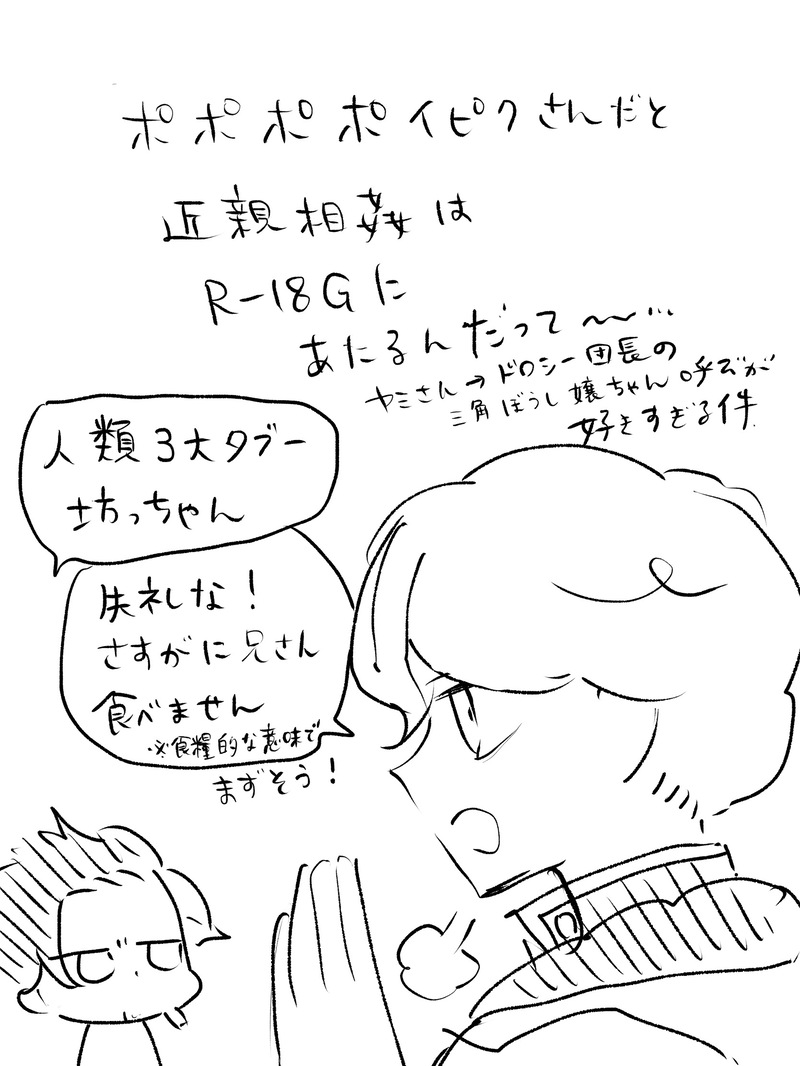 ポポポポイピクさんだと
近親相姦は
R-18Gに
あたるんだって〜〜…
ヤミさん→ドロシー団長の
三角ぼうし嬢ちゃん呼びが
好きすぎる件
人類3大タブー
坊っちゃん
失礼な!
さすがに兄さん
食べません
※食糧的な意味で
まずそう!